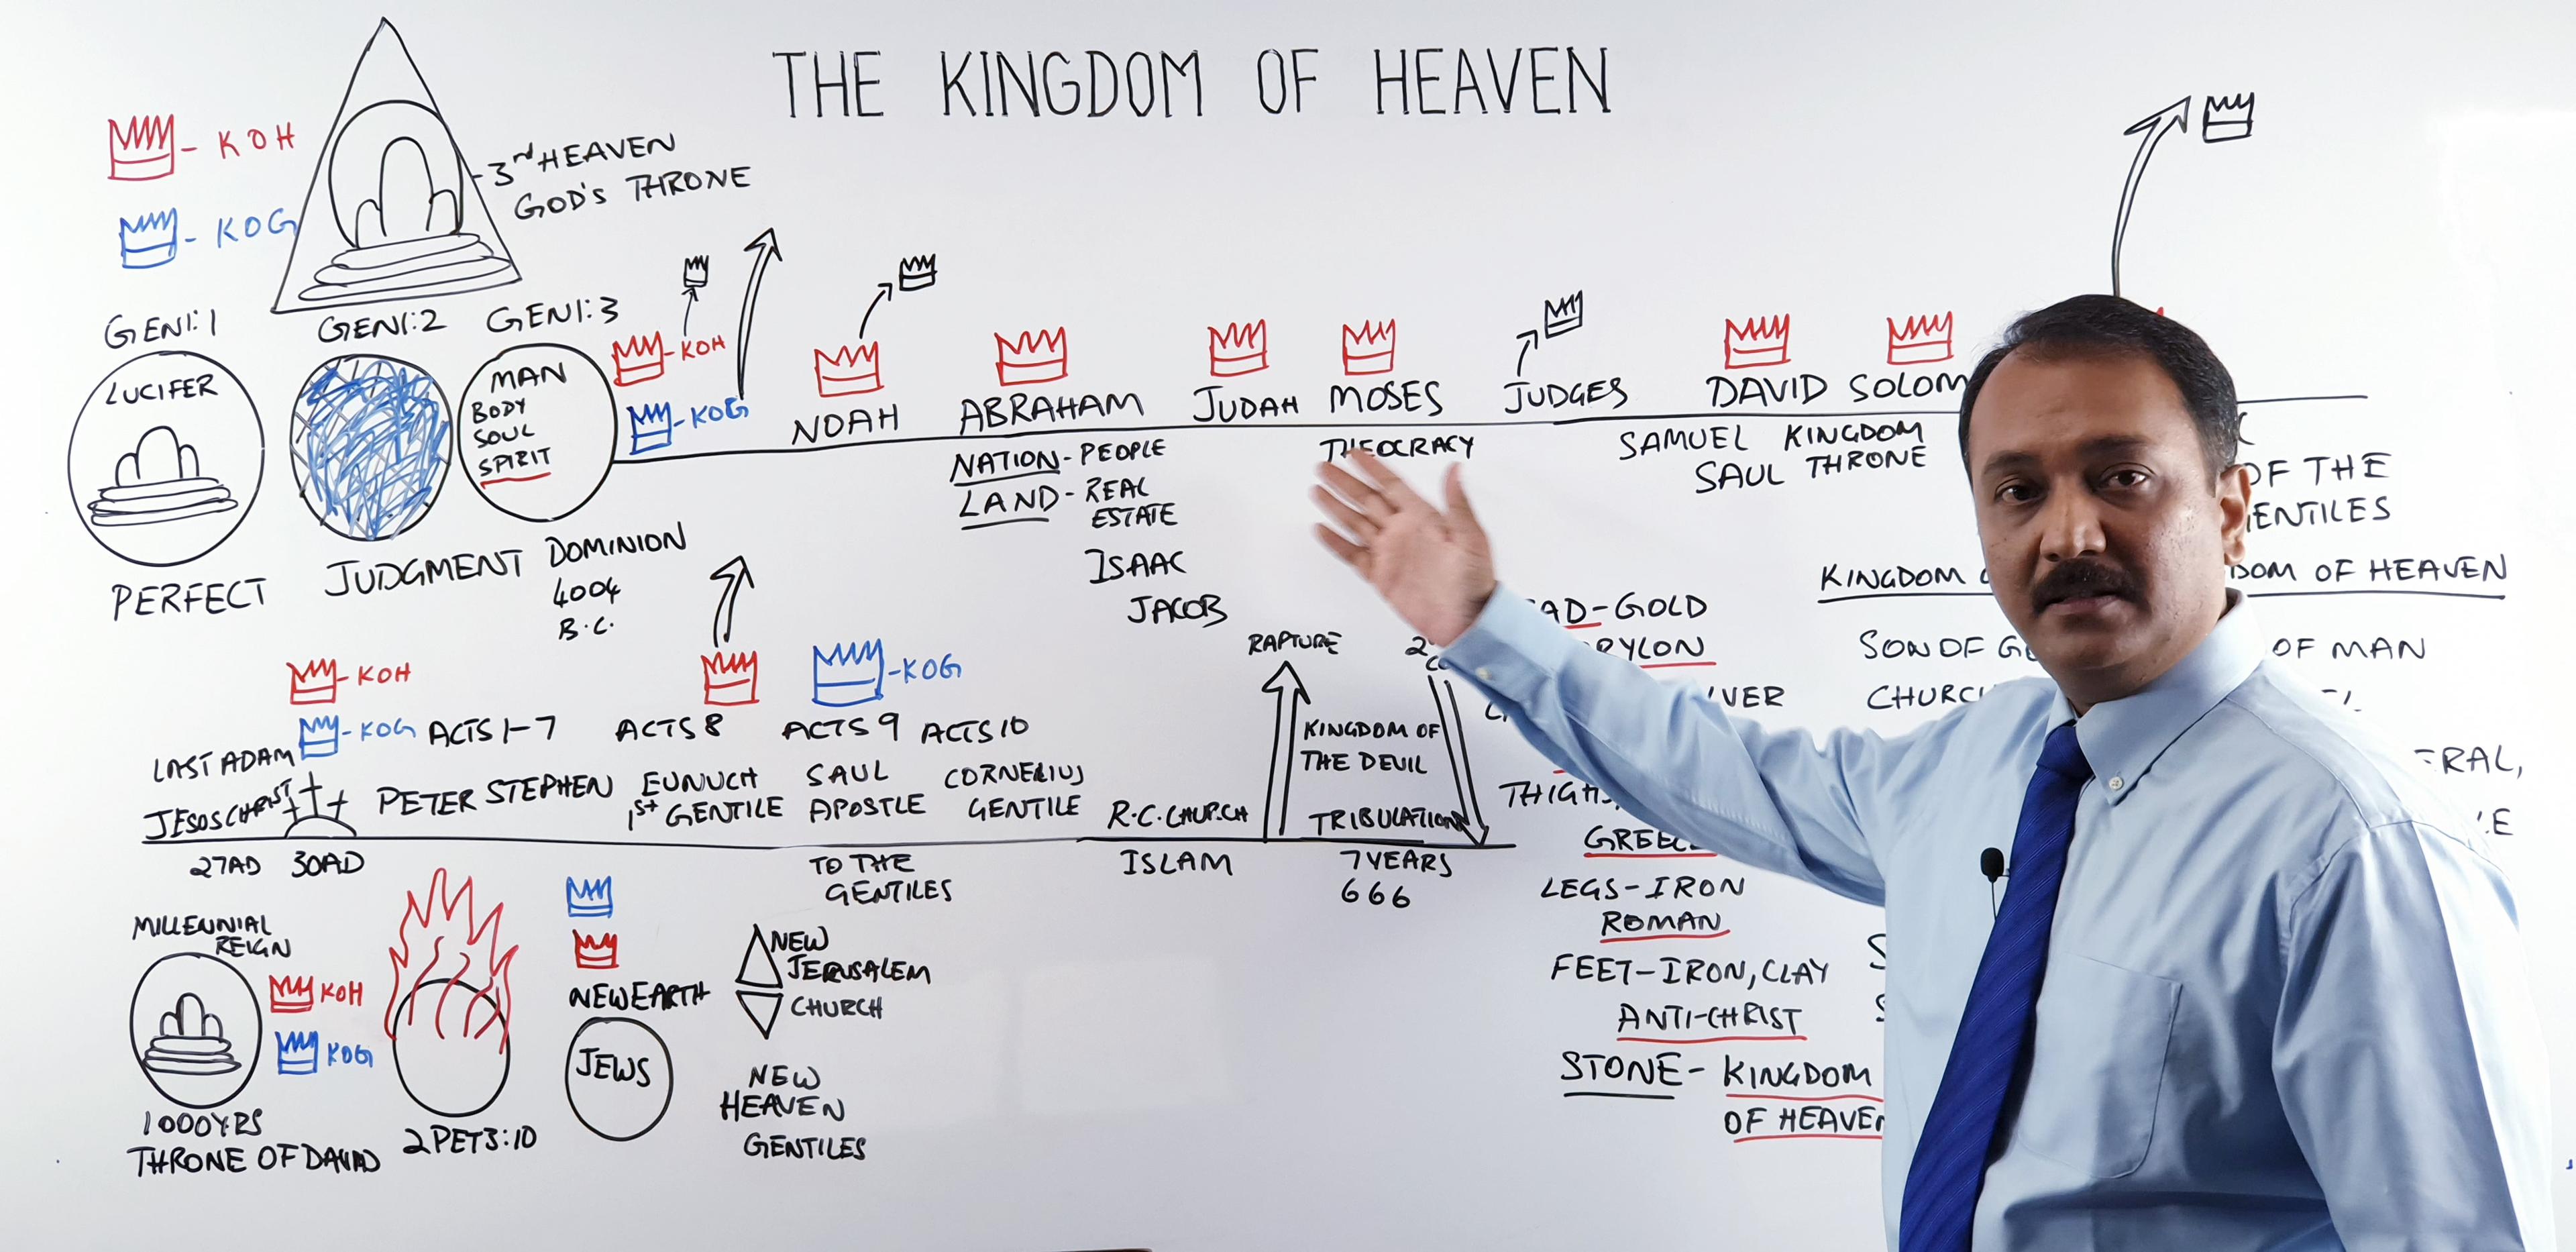 THE KINGDOM OF HEAVEN
- KOH
- KOG
- 3rd HEAVEN
GOD'S THRONE
GEN1:1
GEN1:2
GEN1:3
LUCIFER
PERFECT
JUDGMENT
MAN
BODY
SOUL
SPIRIT
DOMINION
4004
B.C.
-KOH
-KOG
NOAH
ABRAHAM
JUDAH
MOSES
JUDGES
DAVID
SOLOM
NATION-PEOPLE
LAND-REAL
ESTATE
ISAAC
JACOB
THEOCRACY
SAMUEL KINGDOM
SAUL THRONE
OF THE
ENTILES
-KOH
-KOG
LAST ADAM
JESOS CHRIST
27AD 30AD
ACTS 1-7
PETER STEPHEN
ACTS 8
EUNUCH
1st GENTILE
-KOG
ACTS 9
SAUL
APOSTLE
TO THE
GENTILES
ACTS 10
CORNELIUS
GENTILE
R.C.CHURCH
ISLAM
RAPTURE
KINGDOM OF
THE DEVIL
TRIBULATION
7YEARS
666
AD-GOLD
YLON
VER
THIGH
GREEC
LEGS-IRON
ROMAN
FEET-IRON,CLAY
ANTI-CHRIST
STONE- KINGDOM
OF HEAVEN
KINGDOM
DOM OF HEAVEN
SON OF G
OF MAN
CHURC
RAL,
MILLENNIAL
REIGN
KOH
KOG
1000YRS
THRONE OF DAVID
2PET3:10
NEW EARTH
JEWS
NEW
JERUSALEM
CHURCH
NEW
HEAVEN
GENTILES